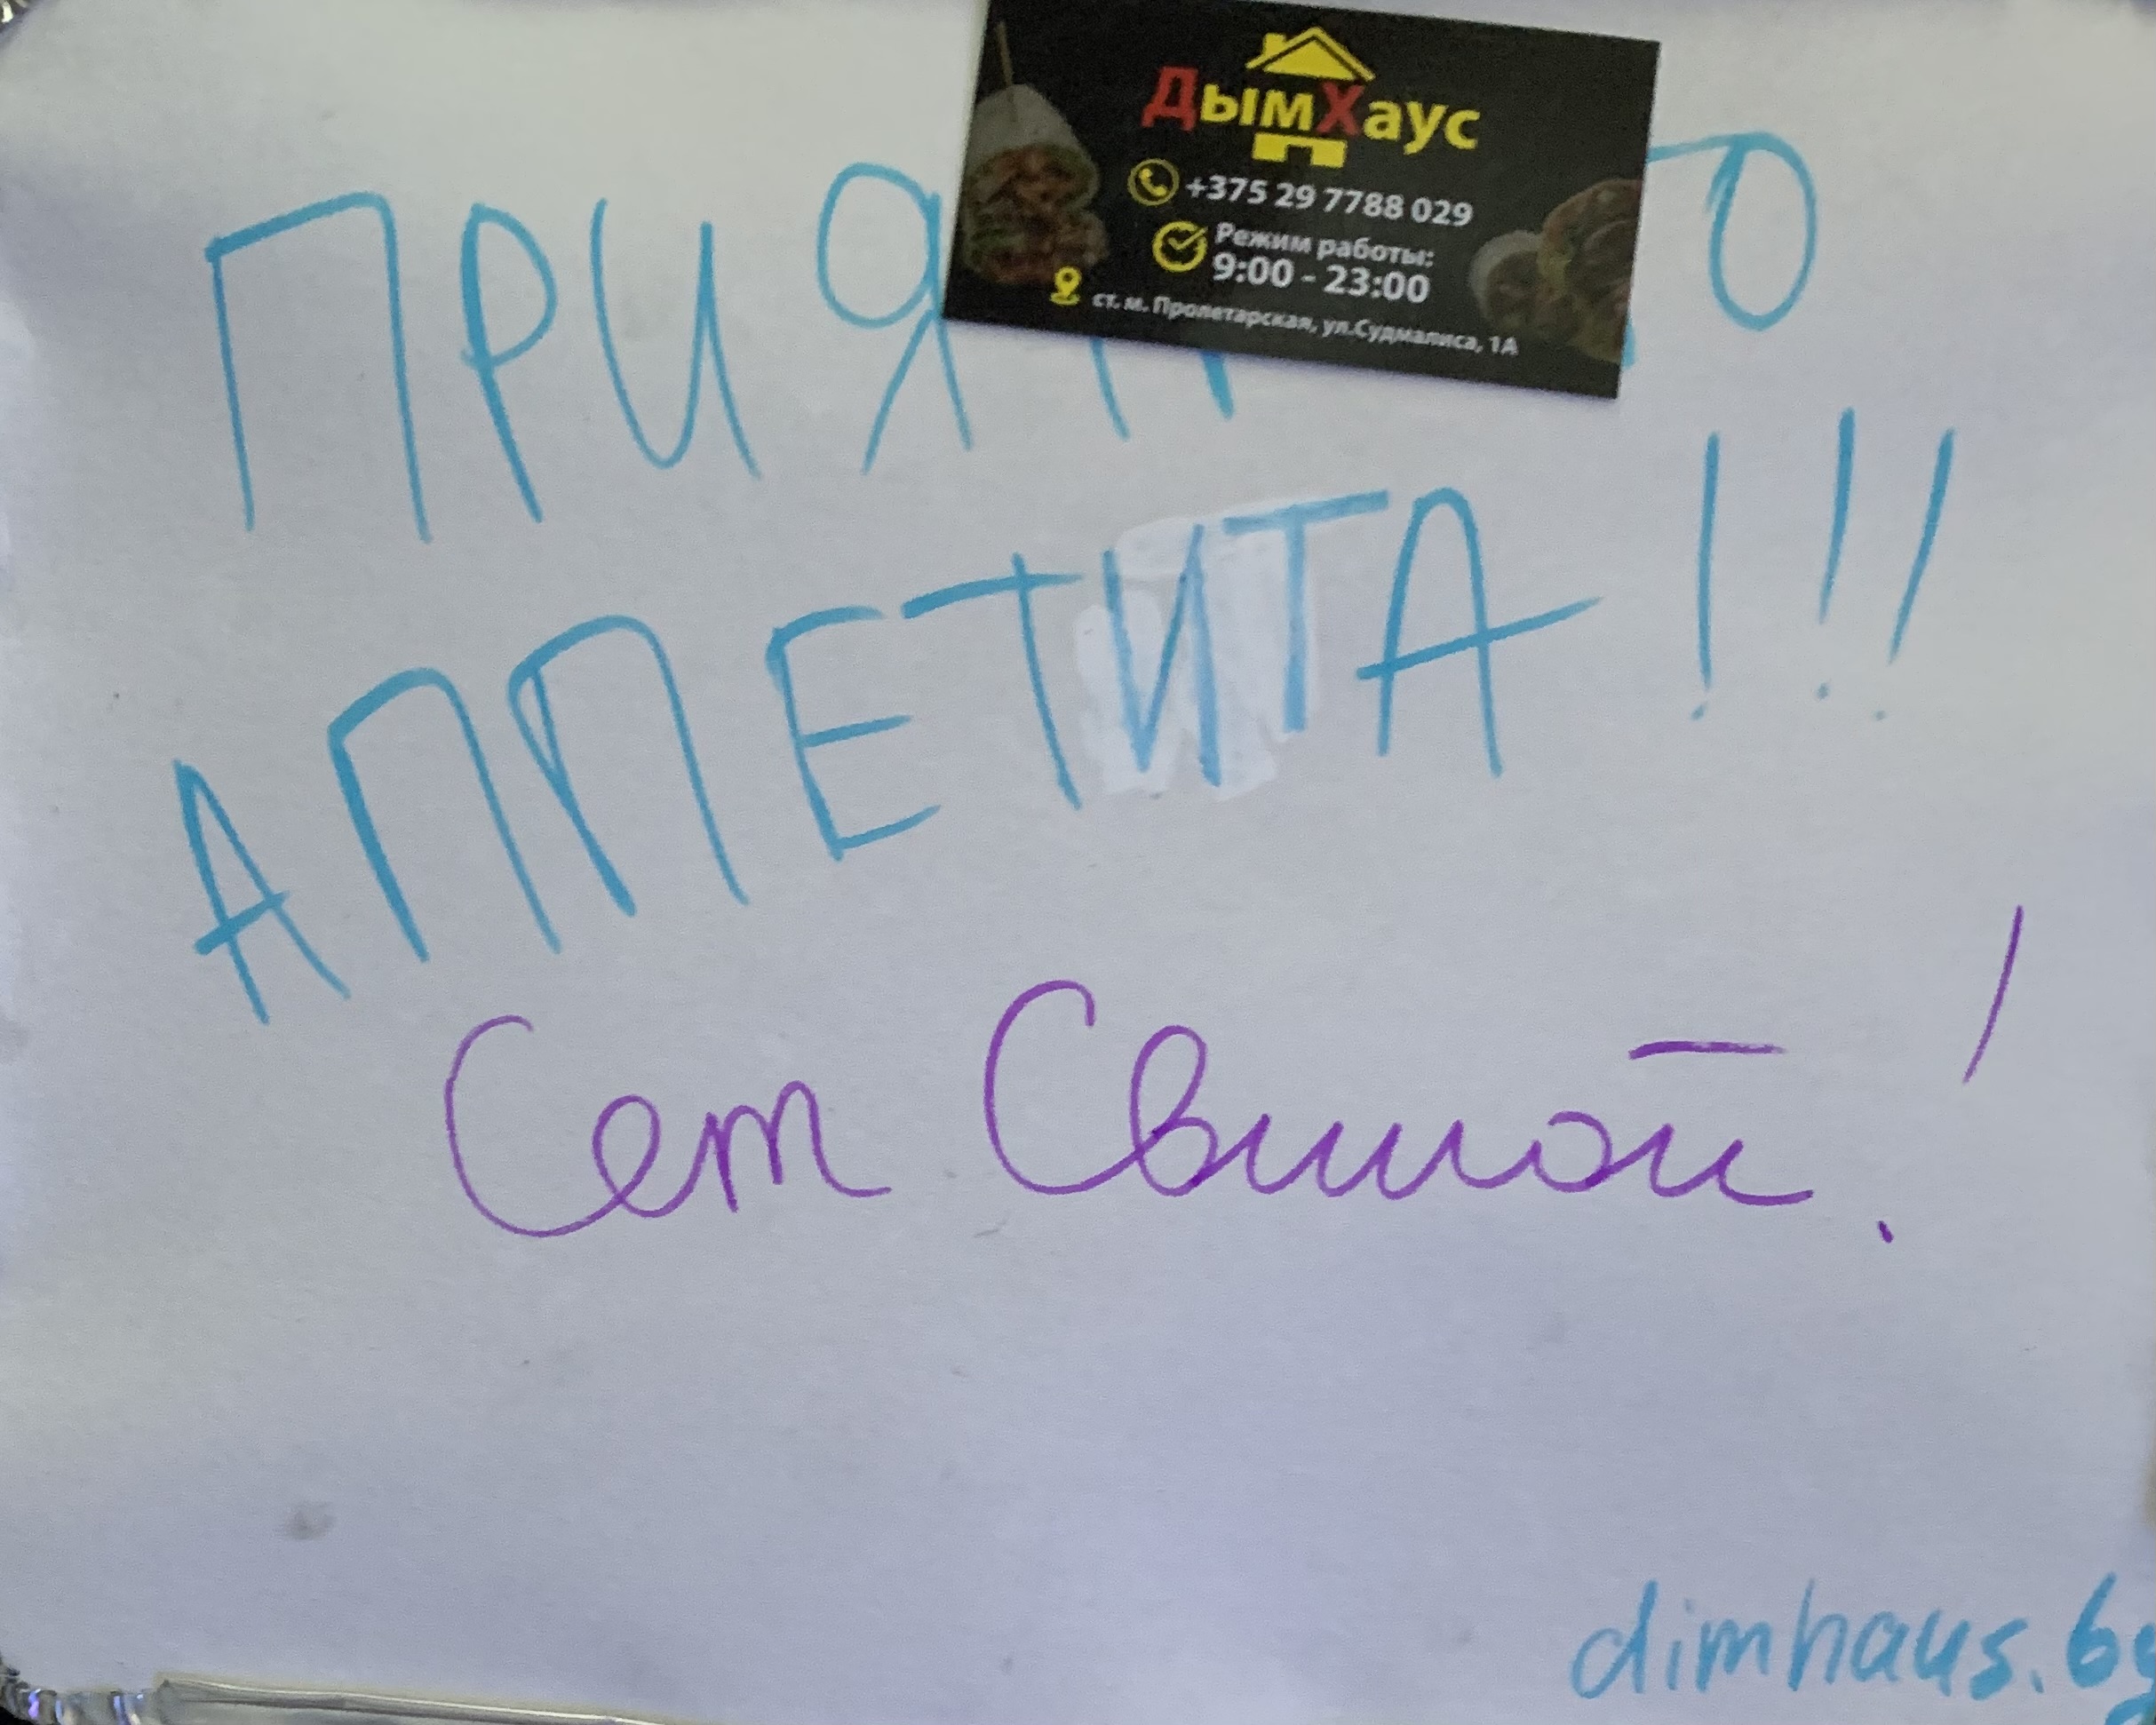 ДымХаус
+375 29 7788 029
Режим работы:
9:00 - 23:00
ст. м. Пролетарская, ул.Судмалиса, 1А
ПРИЯТНОГО
АППЕТИТА!!!
Сет Свиной!
dimhaus.by